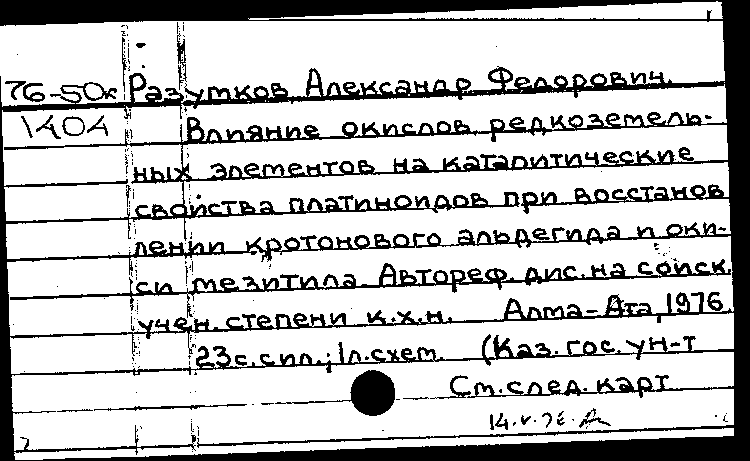 76-50к Разутков, Александр Федорович.
1404 Влияние окислов редкоземель-
ных элементов на каталитические
свойства платиноидов при восстанов
лении кротонового альдегида и оки-
си мезитила. Автореф. дис. на соиск.
учен. степени к.х.н. Алма-Ата, 1976.
23с. с ил.; 1л. схем. (Каз. гос. ун-т
См. след. карт
14.V.76.